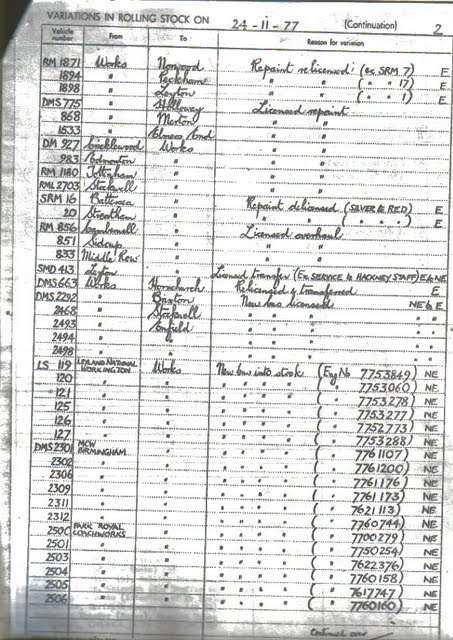 VARIATIONS IN ROLLING STOCK ON 24-11-77 (Continuation) 2
Vehicle number From To Reason for variation
RM 1871 Works Norwood Repaint relicensed: (ex SRM 7) E
1894 " Peckham " " ( " " 17) E
1898 " Leyton " " ( " " 1) E
DMS 775 " Holloway Licensed repaint
868 " Merton " "
1533 " Elmers End " "
DM 927 Cricklewood Works " "
983 Edmonton " " "
RM 1180 Tottenham " " "
RML 2703 Stockwell " " "
SRM 16 Battersea " Repaint delicensed (SILVER to RED) E
20 Streatham " " " ( " " " ) E
RM 856 Camberwell " Licensed overhaul
851 Sidcup " " "
833 Middle Row " " "
SMD 413 Leyton " Licensed transfer (Ex SERVICE to HACKNEY STAFF) E to NE
DMS 663 Works Hornchurch Relicensed & transferred E
DMS 2292 " Brixton New bus licensed NE to E
2468 " Stockwell " " " " "
2493 " Enfield " " " " "
2494 " " " " " " "
2498 " " " " " " "
LS 119 LEYLAND NATIONAL WORKINGTON Works New bus into stock (Eng No 7753849) NE
120 " " " " " " ( " 7753060) NE
121 " " " " " " ( " 7753278) NE
125 " " " " " " ( " 7753277) NE
126 " " " " " " ( " 7752773) NE
127 " " " " " " ( " 7753288) NE
DMS 2301 MCW BIRMINGHAM " " " " " ( " 7761107) NE
2302 " " " " " " ( " 7761200) NE
2306 " " " " " " ( " 7761176) NE
2309 " " " " " " ( " 7761173) NE
2311 " " " " " " ( " 7621113) NE
2312 " " " " " " ( " 7760744) NE
2500 PARK ROYAL COACHWORKS " " " " " ( " 7700279) NE
2501 " " " " " " ( " 7750254) NE
2503 " " " " " " ( " 7622376) NE
2504 " " " " " " ( " 7760158) NE
2505 " " " " " " ( " 7617747) NE
2506 " " " " " " ( " 7760160) NE
Continued over